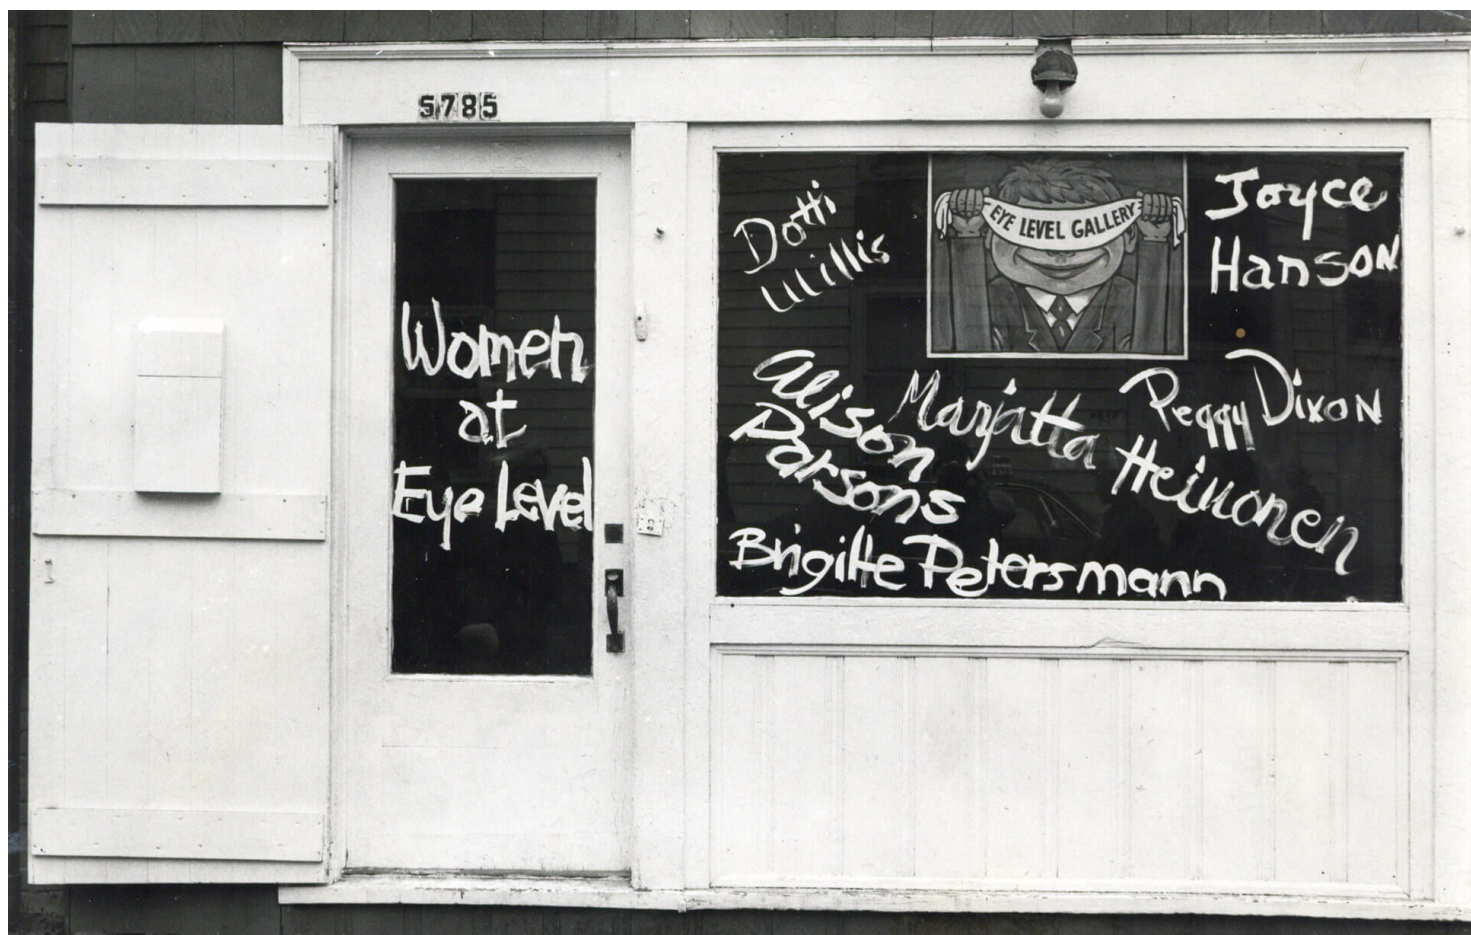 5785
Women
at
Eye Level
Dotti
Willis
EYE LEVEL GALLERY
Joyce
Hanson
Alison
Parsons
Marjatta
Heinonen
Peggy Dixon
Brigitte Petersmann